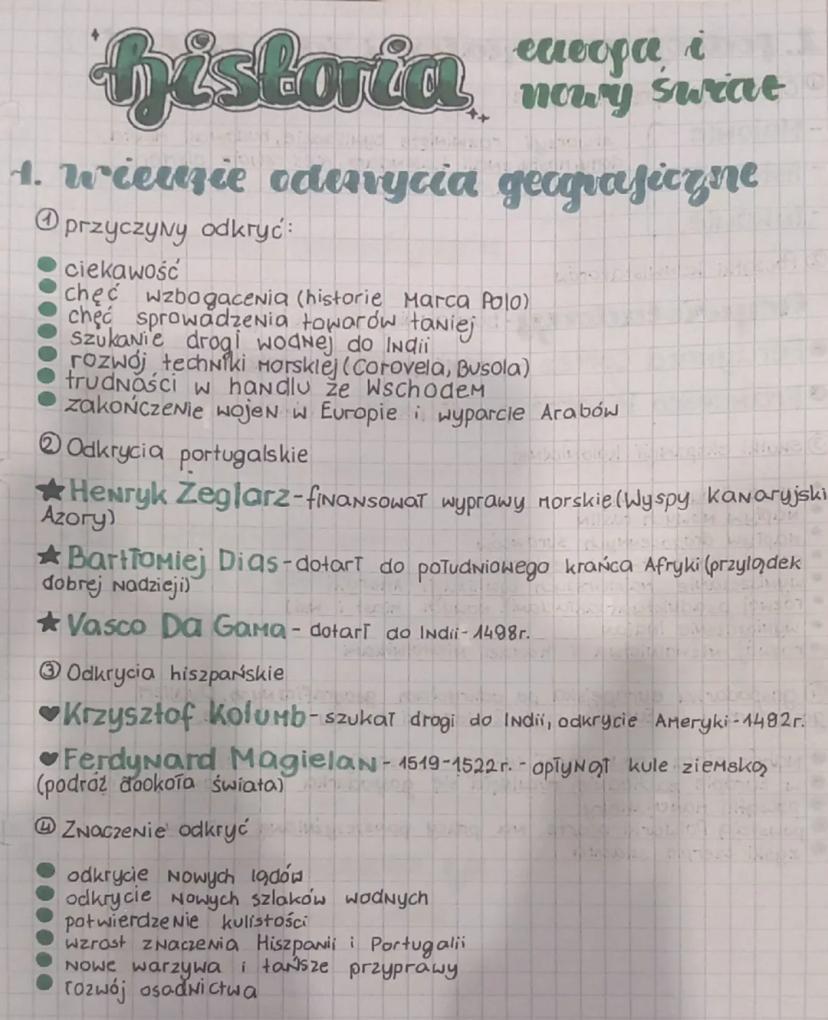 historia
europa i
nowy świat
1. wielkie odkrycia geograficzne
① przyczyny odkryć:
ciekawość
chęć wzbogacenia (historie Marca Polo)
chęć sprowadzenia towarów taniej
szukanie drogi wodnej do Indii
rozwój techniki morskiej (Corovela, Busola)
trudności w handlu ze Wschodem
zakończenie wojen w Europie i wyparcie Arabów
② Odkrycia portugalskie
★ Henryk Żeglarz - finansował wyprawy morskie (Wyspy Kanaryjski
Azory)
★ Bartłomiej Dias - dotarł do południowego krańca Afryki (przylądek
dobrej Nadzieji)
★ Vasco Da Gama - dotarł do Indii - 1498r.
③ Odkrycia hiszpańskie
♥ Krzysztof Kolumb - szukał drogi do Indii, odkrycie Ameryki - 1492r.
♥ Ferdynard Magielan - 1519-1522r. - opłynął kule ziemską
(podróż dookoła świata)
④ Znaczenie odkryć
odkrycie nowych lądów
odkrycie nowych szlaków wodnych
potwierdzenie kulistości
wzrost znaczenia Hiszpanii i Portugalii
nowe warzywa i tańsze przyprawy
rozwój osadnictwa